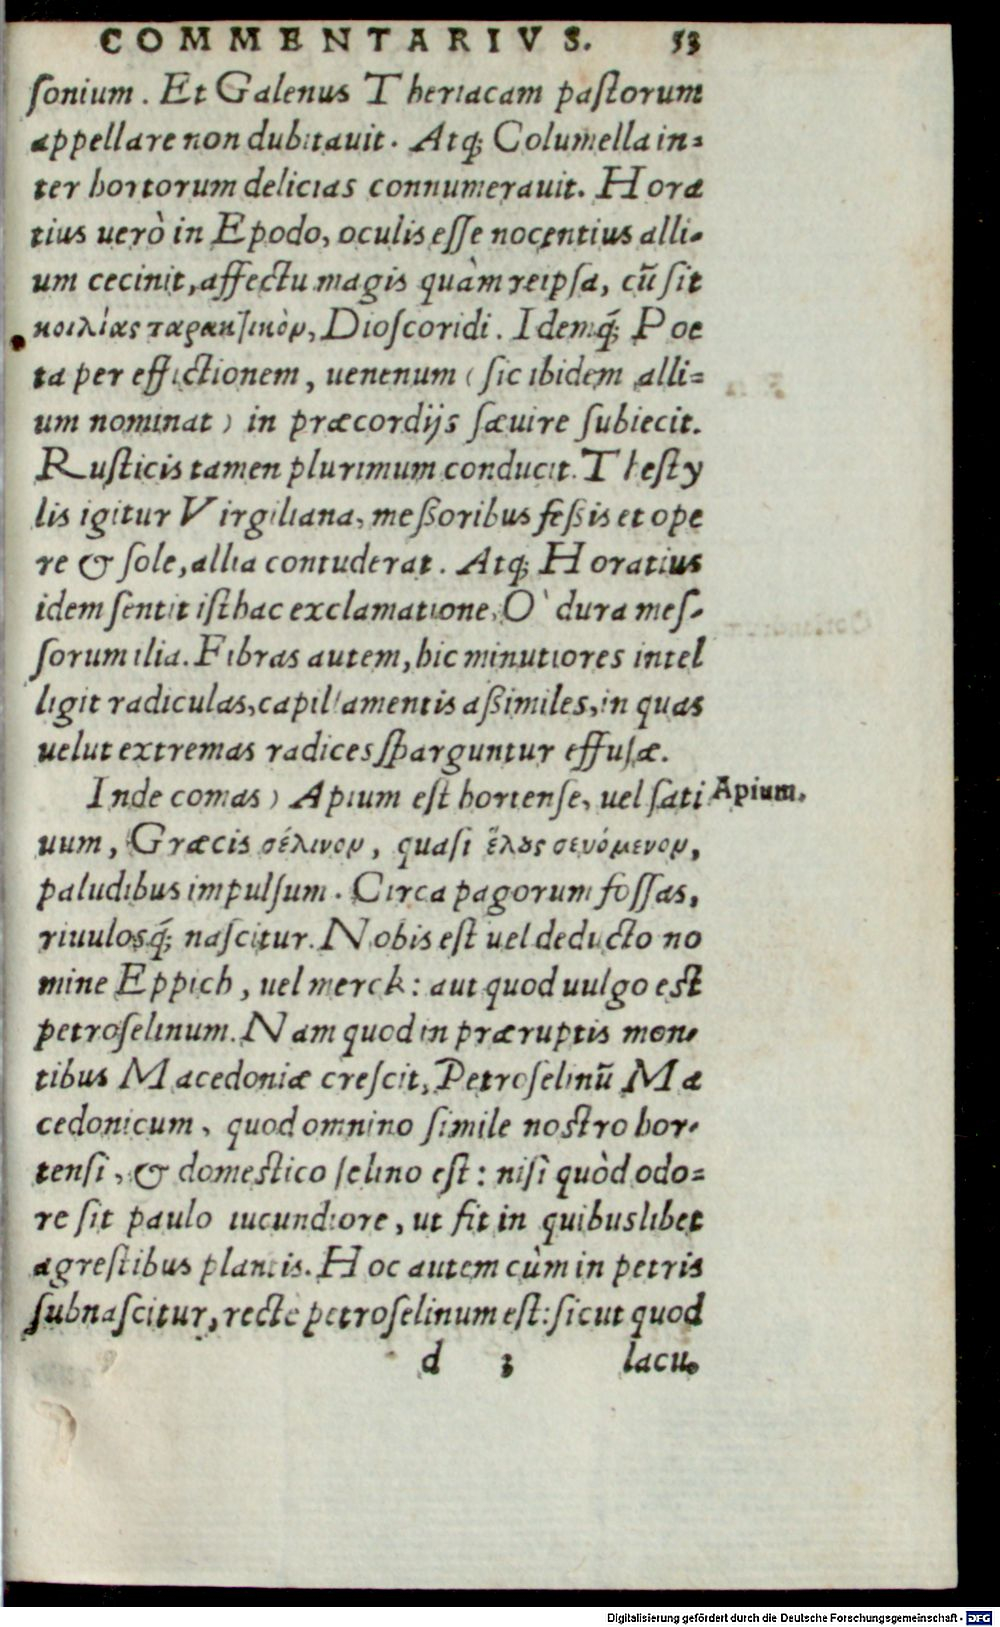 COMMENTARIVS. 53
ſonium. Et Galenus Theriacam paſtorum
appellare non dubitauit. Atq́; Columella in⸗
ter hortorum delicias connumerauit. Hora
tius uerò in Epodo, oculis eſſe nocentius alli⸗
um cecinit, affectu magis quàm reipſa, cũ ſit
κοιλίας ταρακτικὸν, Dioſcoridi. Idemq́; Poe
ta per effictionem, uenenum (ſic ibidem alli⸗
um nominat) in præcordijs ſæuire ſubiecit.
Ruſticis tamen plurimum conducit. Theſty
lis igitur Virgiliana, meßoribus feßis et ope
re & ſole, allia contuderat. Atq́; Horatius
idem ſentit iſthac exclamatione, O` dura meſ⸗
ſorum ilia. Fibras autem, hic minutiores intel
ligit radiculas, capillamentis aßimiles, in quas
uelut extremas radices ſparguntur effuſæ.
Inde comas) Apium eſt hortenſe, uel ſati
uum, Græcis σέλινον, quaſi ἕλους σευόμενον,
paludibus impulſum. Circa pagorum foſſas,
riuulosq́; naſcitur. Nobis eſt uel deducto no
mine Eppich, uel merck: aut quod uulgo est
petroſelinum. Nam quod in præruptis mon⸗
tibus Macedoniæ creſcit, Petroſelinũ Ma
cedonicum, quod omnino ſimile nostro hor⸗
tenſi, & domeſtico ſelino eſt: niſi quòd odo⸗
re ſit paulo iucundiore, ut fit in quibuslibet
agreſtibus plantis. Hoc autem cùm in petris
ſubnaſcitur, recte petroſelinum eſt: ſicut quod
d 3 lacu⸗
Apium.
Digitalisierung gefördert durch die Deutsche Forschungsgemeinschaft - DFG